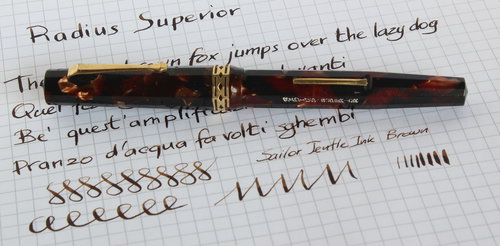 Radius Superior
The fox jumps over the lazy dog
Quel
Be' quest'amplif
Pranzo d'acqua fa volti sghembi
Sailor Jentle Ink Brown